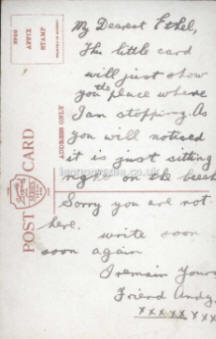 My Dearest Ethel,
This little card
will just show
you the place where
I am stopping. As
you will noticed
it is just sitting
right on the beach
Sorry you are not
here. write soon
soon again
I remain Yours
Friend Andy.
xxxxxxxx
POST CARD
ADDRESS ONLY
AFFIX
STAMP